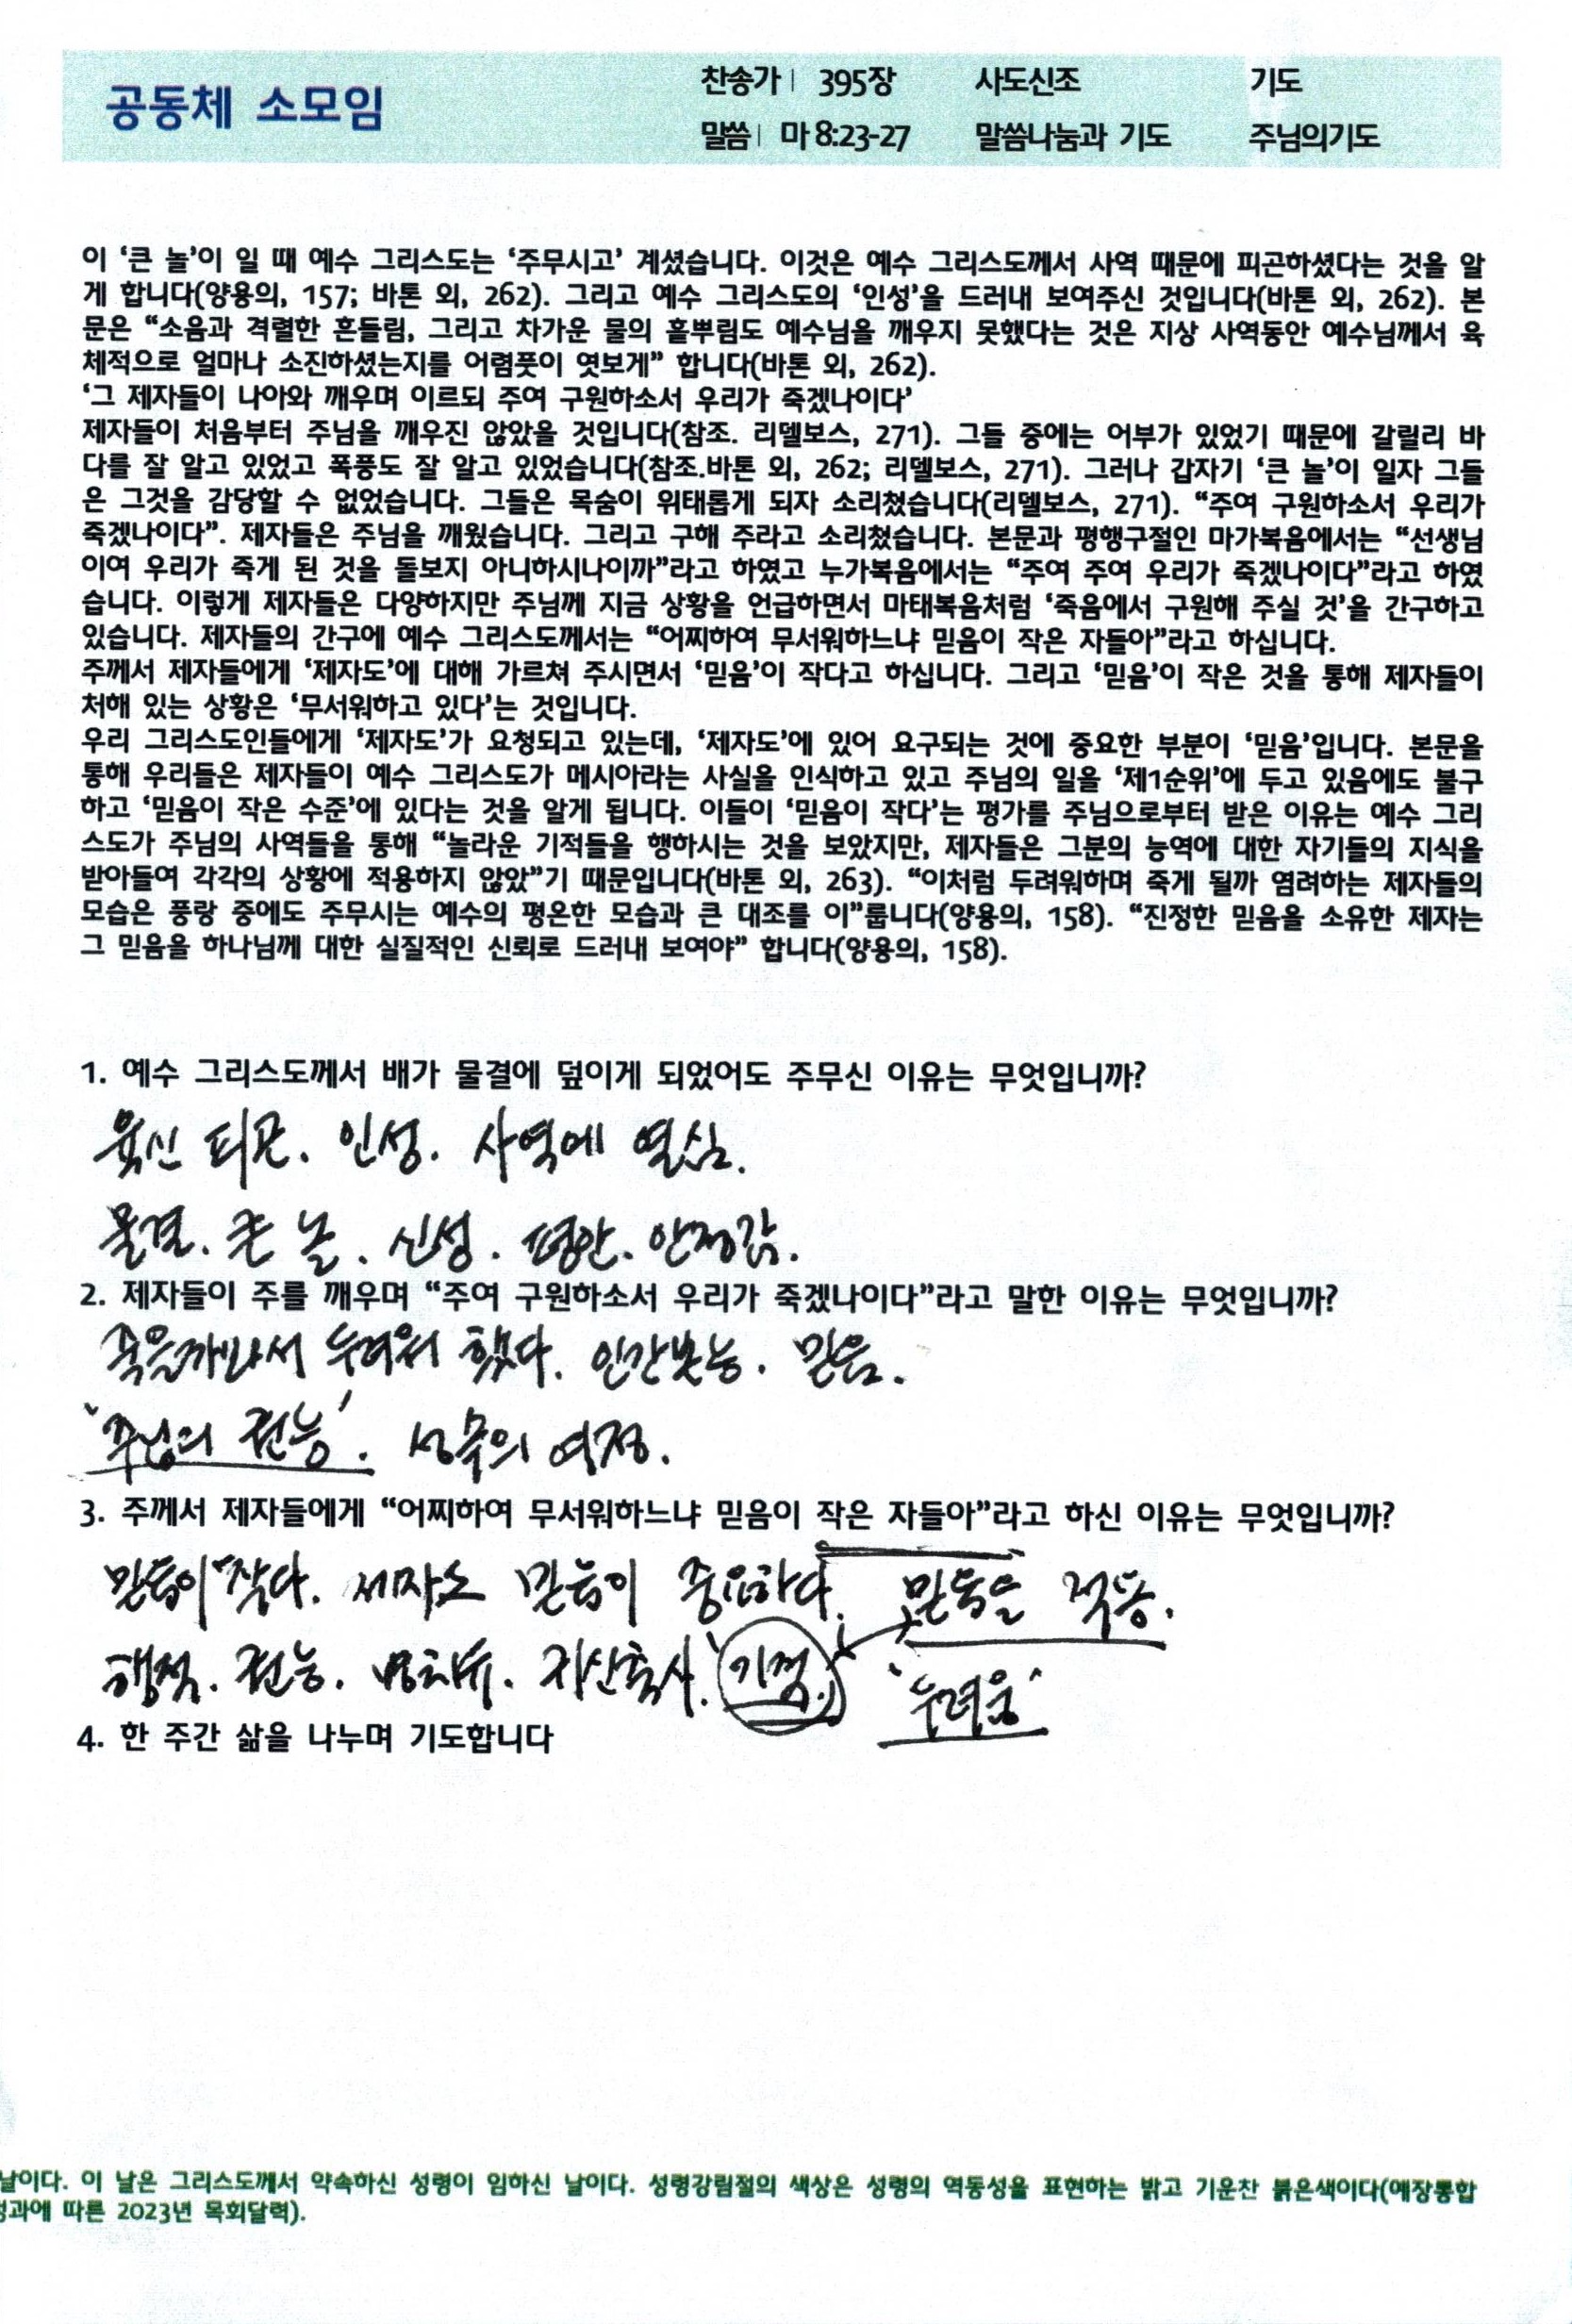 공동체 소모임
찬송가 | 395장 사도신조 기도
말씀 | 마 8:23-27 말씀나눔과 기도 주님의기도
이 ‘큰 놀’이 일 때 예수 그리스도는 ‘주무시고’ 계셨습니다. 이것은 예수 그리스도께서 사역 때문에 피곤하셨다는 것을 알
게 합니다(양용의, 157; 바톤 외, 262). 그리고 예수 그리스도의 ‘인성’을 드러내 보여주신 것입니다(바톤 외, 262). 본
문은 “소음과 격렬한 흔들림, 그리고 차가운 물의 흩뿌림도 예수님을 깨우지 못했다는 것은 지상 사역동안 예수님께서 육
체적으로 얼마나 소진하셨는지를 어렴풋이 엿보게” 합니다(바톤 외, 262).
‘그 제자들이 나아와 깨우며 이르되 주여 구원하소서 우리가 죽겠나이다’
제자들이 처음부터 주님을 깨우진 않았을 것입니다(참조. 리델보스, 271). 그들 중에는 어부가 있었기 때문에 갈릴리 바
다를 잘 알고 있었고 폭풍도 잘 알고 있었습니다(참조.바톤 외, 262; 리델보스, 271). 그러나 갑자기 ‘큰 놀’이 일자 그들
은 그것을 감당할 수 없었습니다. 그들은 목숨이 위태롭게 되자 소리쳤습니다(리델보스, 271). “주여 구원하소서 우리가
죽겠나이다”. 제자들은 주님을 깨웠습니다. 그리고 구해 주라고 소리쳤습니다. 본문과 평행구절인 마가복음에서는 “선생님
이여 우리가 죽게 된 것을 돌보지 아니하시나이까”라고 하였고 누가복음에서는 “주여 주여 우리가 죽겠나이다”라고 하였
습니다. 이렇게 제자들은 다양하지만 주님께 지금 상황을 언급하면서 마태복음처럼 ‘죽음에서 구원해 주실 것’을 간구하고
있습니다. 제자들의 간구에 예수 그리스도께서는 “어찌하여 무서워하느냐 믿음이 작은 자들아”라고 하십니다.
주께서 제자들에게 ‘제자도’에 대해 가르쳐 주시면서 ‘믿음’이 작다고 하십니다. 그리고 ‘믿음’이 작은 것을 통해 제자들이
처해 있는 상황은 ‘무서워하고 있다’는 것입니다.
우리 그리스도인들에게 ‘제자도’가 요청되고 있는데, ‘제자도’에 있어 요구되는 것에 중요한 부분이 ‘믿음’입니다. 본문을
통해 우리들은 제자들이 예수 그리스도가 메시아라는 사실을 인식하고 있고 주님의 일을 ‘제1순위’에 두고 있음에도 불구
하고 ‘믿음이 작은 수준’에 있다는 것을 알게 됩니다. 이들이 ‘믿음이 작다’는 평가를 주님으로부터 받은 이유는 예수 그리
스도가 주님의 사역들을 통해 “놀라운 기적들을 행하시는 것을 보았지만, 제자들은 그분의 능역에 대한 자기들의 지식을
받아들여 각각의 상황에 적용하지 않았”기 때문입니다(바톤 외, 263). “이처럼 두려워하며 죽게 될까 염려하는 제자들의
모습은 풍랑 중에도 주무시는 예수의 평온한 모습과 큰 대조를 이”룹니다(양용의, 158). “진정한 믿음을 소유한 제자는
그 믿음을 하나님께 대한 실질적인 신뢰로 드러내 보여야” 합니다(양용의, 158).
1. 예수 그리스도께서 배가 물결에 덮이게 되었어도 주무신 이유는 무엇입니까?
육신 피곤. 인성. 사역에 열심.
물결. 큰 놀. 신성. 평안. 안정감.
2. 제자들이 주를 깨우며 “주여 구원하소서 우리가 죽겠나이다”라고 말한 이유는 무엇입니까?
죽을까봐서 두려워 했다. 인간불능. 믿음.
‘주님의 권능’. 성숙의 여정.
3. 주께서 제자들에게 “어찌하여 무서워하느냐 믿음이 작은 자들아”라고 하신 이유는 무엇입니까?
믿음이 작다. 제자도 믿음이 중요하다. 믿음을 적용.
행적. 권능. 기적. ‘두려움’
4. 한 주간 삶을 나누며 기도합니다
날이다. 이 날은 그리스도께서 약속하신 성령이 임하신 날이다. 성령강림절의 색상은 성령의 역동성을 표현하는 밝고 기운찬 붉은색이다(예장통합
성과에 따른 2023년 목회달력).